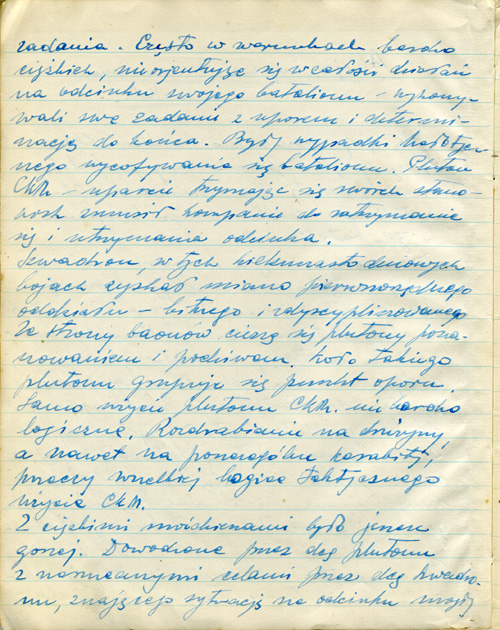 zadania. Często w warunkach bardzo
ciężkich, nie orjentując się w całości działań
na odcinku swojego bataljonu – wykony-
wali swe zadania z uporem i determi-
nacją do końca. Były wypadki
wycofywania się bataljonu. Pluton
CKM – uparcie trzymając się swoich stano-
wisk zmusił kompanie do zatrzymania
się i utrzymania odcinka.
Szwadron, w tych kilkunastodniowych
bojach zyskał miano pierwszorzędnego
oddziału – bitnego i zdyscyplinowanego
Ze strony baonów cieszą się plutony posza-
nowaniem i podziwem. Koło takiego
plutonu grupuje się punkt oporu.
Samo użycie plutonu CKM. nie bardzo
logiczne. Rozdrabianie na drużyny,
a nawet na poszczególne karabiny,
przeczy wszelkiej logice taktycznego
użycia CKM.
Z ciężkimi moździerzami było jeszcze
gorzej. Dowodzone przez dcę plutonu
z naznaczonymi celami przez dcę szwadro-
nu, znającego sytuację na odcinku swojej